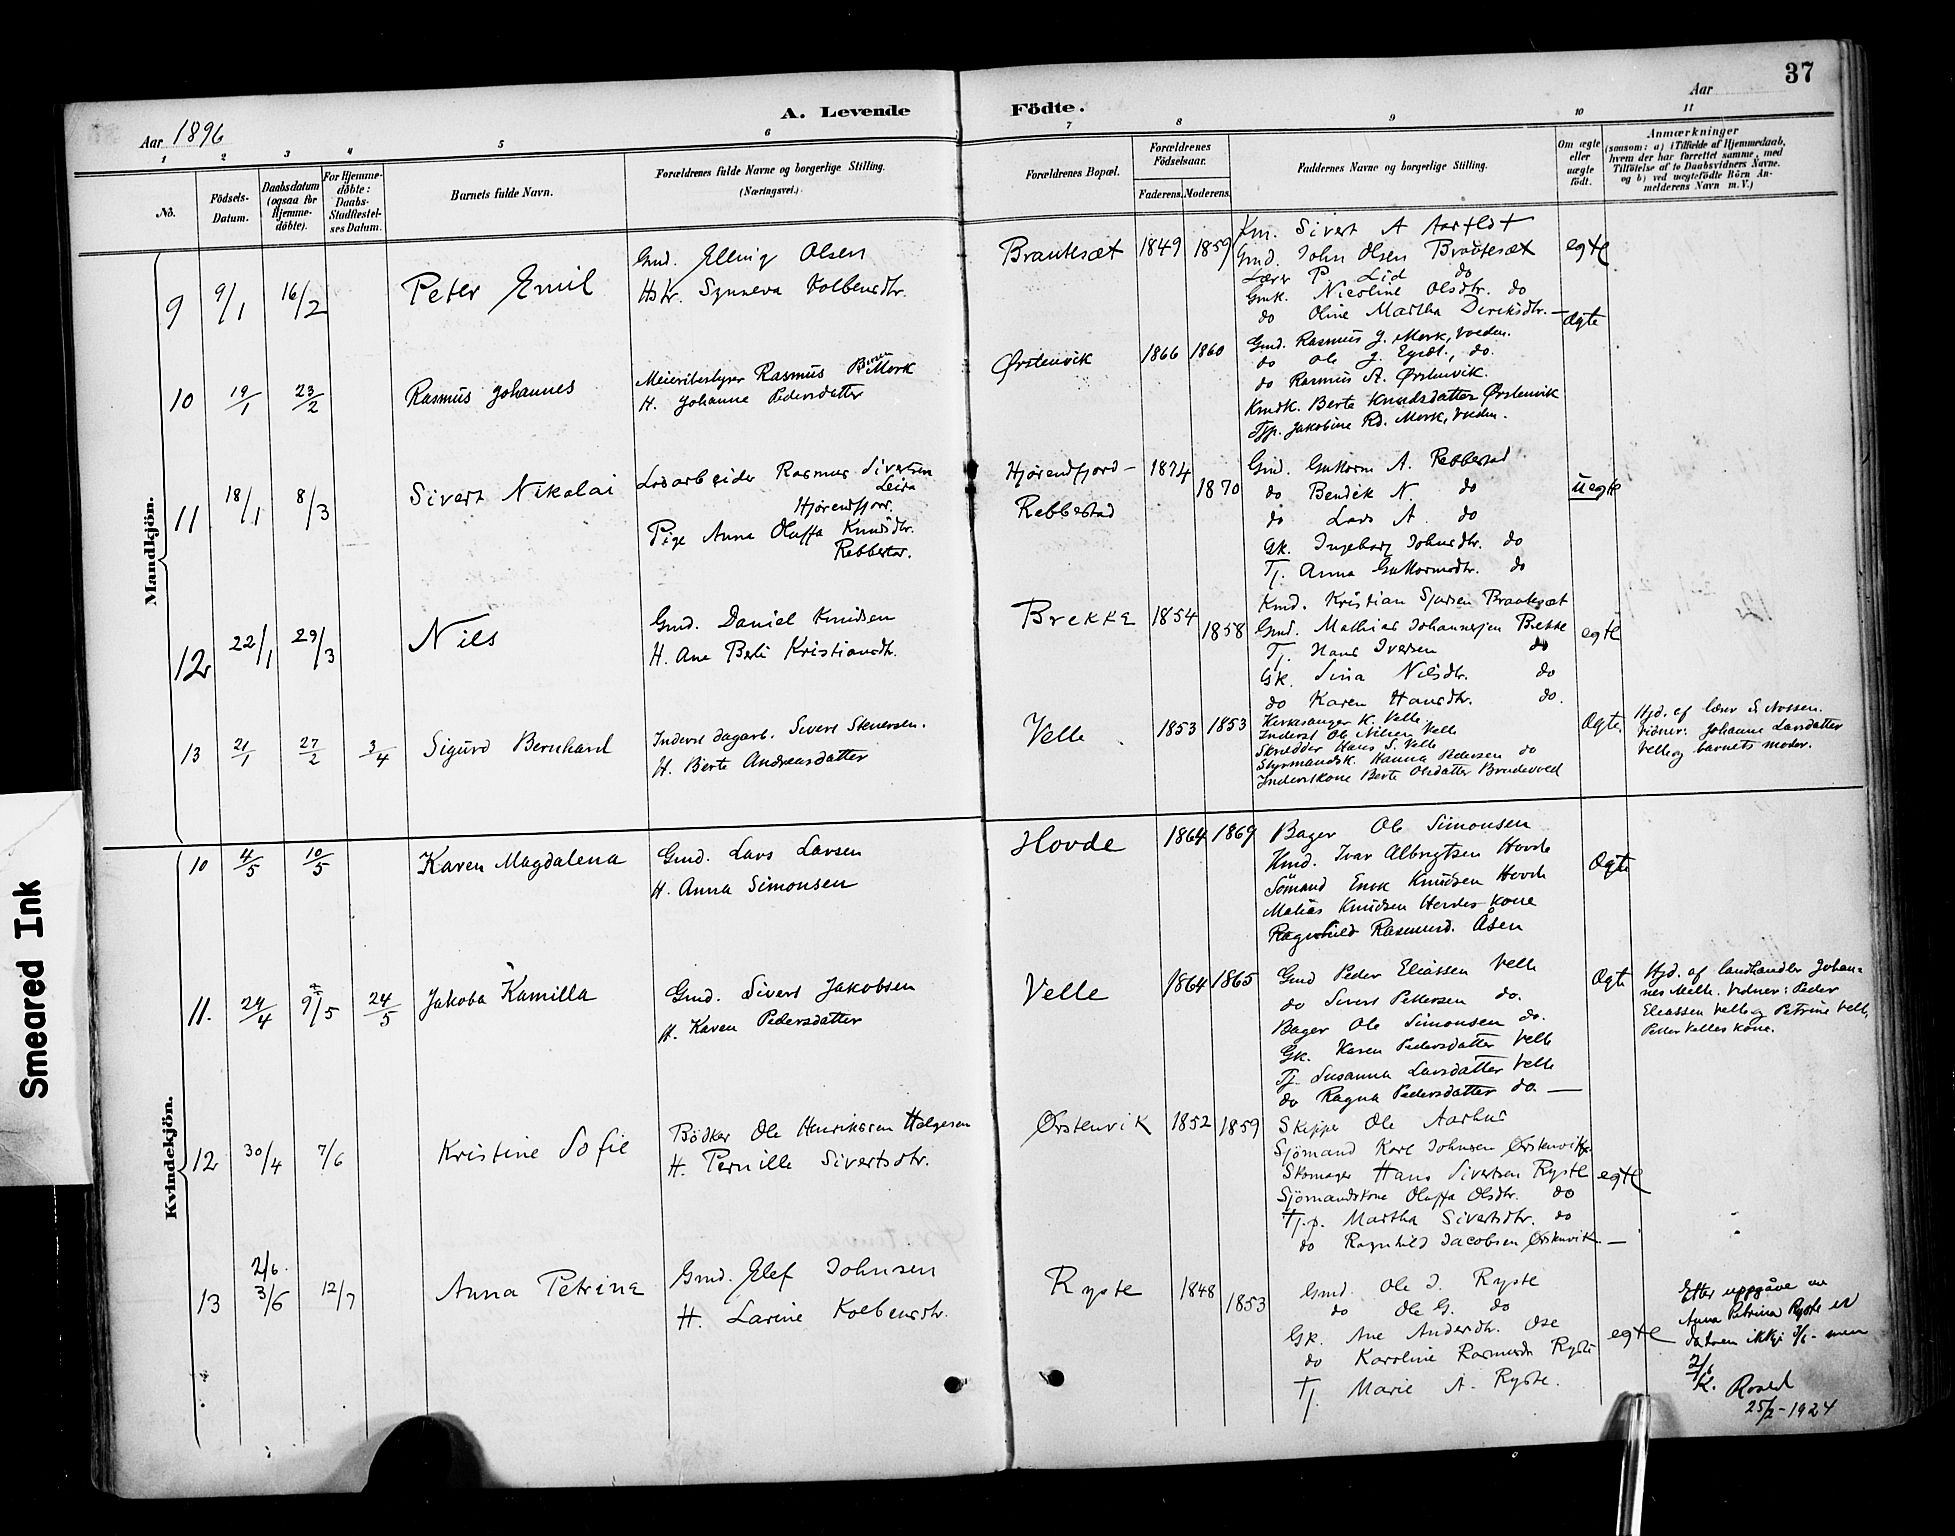 37
Aar 1896
A. Levende Födte.
Aar
1 2 3 4 5 6 7 8 9 10 11
No.
Födsels-Datum.
Daabsdatum (ogsaa for Hjemme-döbte).
For Hjemme-döbte: Daabs-Stadfæstel-ses Datum.
Barnets fulde Navn.
Forældrenes fulde Navne og borgerlige Stilling.
(Næringsvei.)
Forældrenes Bopæl.
Forældrenes Födselsaar.
Faderens. Moderens.
Faddernes Navne og borgerlige Stilling.
Om ægte eller uægte födt.
Anmærkninger
(saasom: a) i Tilfælde af Hjemmedaab,
hvem der har forrettet samme, med
Tilföielse af to Daabsvidners Navne.
og b) ved uægtefödte Börn An-
melderens Navn m. V.)
Mandkjön.
9 9/1 16/2 Peter Emil
Gmd. Elling Olsen
Hstr. Synneva Kolbensdtr.
Brautesæt 1849 1859
Km. Sivert A Aarflot
Gmd. John Olsen Brautesæt
Lærer P. Lid do
Gmk. Nicoline Olsdtr. do
do Oline Martha Diriksdtr.
egte
10 19/1 23/2 Rasmus Johannes
Meieribestyrer Rasmus Mork
H. Johanne Pedersdatter
Ørstenvik 1866 1860
Gmd. Rasmus J. Mork, Voeden.
do Ole J. do.
do Rasmus A. Ørstenvik.
Kmdk. Berte Knudsdatter Ørstenvik
Tjp. Jakobine Rd. Mork, Voeden.
Ogte
11 18/1 8/3 Sivert Nikolai
Løsarbeider Rasmus Sivertsen
Leira
Hjørendfjor.
Pige Anna Oluffa Knudsdtr.
Rebbestad.
Hjørendfjord-
Rebbestad
1874 1870
Gmd. Guttorm A. Rebbestad
do Bendik N. do
do Lars A. do
Gk. Ingeborg Johnsdtr. do
Tj. Anna Guttormsdtr. do
uegte
12 22/1 29/3 Nils
Gmd. Daniel Knudsen
H. Ane Berte Kristiansdtr.
Brekke 1854 1858
Kmd. Kristian Sjursen Brautesæt
Gmd. Mathias Johannesen Brekke
Tj. Hans Iversen do
Gk. Sina Nilsdtr. do
do Karen Hansdtr. do.
egte
13 21/1 27/2 3/4 Sigurd Bernhard
Inderst dagarb. Sivert Steversen.
H. Berte Andreasdatter
Velle 1853 1853
Kirkesanger K. Velle.
Inderst Ole Nilsen Velle
Skredder Hans S. Velle
Styrmandsk. Hanna Pedersen do
Inderstkone Berte Olsdatter Brudevold
Ogte.
Hjd. af lærer S. Nossen.
Vidner: Johanne Larsdatter
Velle og barnets moder.
Kvindekjön.
10 4/5 10/5 Karen Magdalena
Gmd. Lars Larsen
H. Anna Simonsen
Hovde 1864 1869
Bager Ole Simonsen
Kmd. Ivar Albrigtsen Hovde
Sømand Enok Knudsen Hovde
Matias Knudsen Hovdes kone
Ragnhild Rasmusd. Åsen
Ogte
11. 24/4 9/5 24/5 Jakoba Kamilla
Gmd. Sivert Jakobsen
H. Karen Pedersdatter
Velle 1864 1865
Gmd Peder Eliassen Velle
do Sivert Pettersen do.
Bager Ole Simonsen do.
Gk. Karen Pedersdatter Velle
Tj. Susanna Larsdatter Velle
do Ragna Pedersdatter do.
Ogte
Hjd. af landhandler Johan-
nes Melle. Vidner: Peder
Eliassen Velle og Petrine Velle,
Petter Velles kone.
12 30/4 7/6 Kristine Sofie
Bödker Ole Henriksen Helgesen
H. Pernille Sivertsdtr.
Ørstenvik 1852 1859
Skipper Ole Aarhus
Sjömand Karl Johnsen Ørstenvik
Skomager Hans Sivertsen Ryste
Sjömandskone Oluffa Olsdtr. do
Tj.p. Martha Sivertsdtr. do
do Ragnhild Jacobsen Ørstenvik
egte
13 2/6. 3/6 12/7 Anna Petrina
Gmd. Elef Johnsen
H. Larine Kolbensdtr.
Ryste 1848 1853
Gmd. Ole J. Ryste
do Ole G. do
Gk. Ane Andersdtr. Ose
do Karoline Rasmusdr Ryste
Tj. Marie A. Ryste.
egte
Etter uppgåve av
Anna Petrina Ryste er
datoen ikkje 3/6 - men
2/6
K. Roald
25/2-1924
Smeared Ink